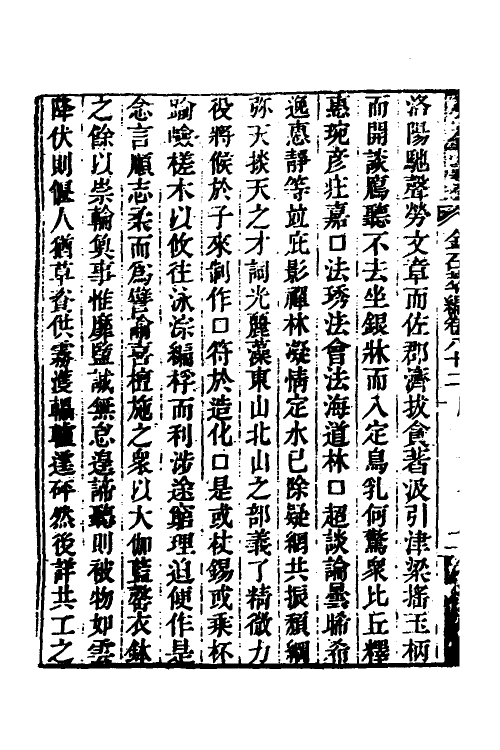 洛陽馳聲勞文章而佐郡濟拔貪著汲引津梁搖玉柄
而開談鳫聽不去坐銀牀而入定鳥乳何驚衆比丘釋
惠琬彦莊嘉口法琇法會法海道林口超談論曇晞希
逸惠靜等竝庇影禪林凝情定水已除疑網共振頽綱
弥天掞天之才詞光麗藻東山北山之部義了精微力
役將候於子來制作口符於造化口是或杖錫或乘杯
踰嶮槎木以攸往泳淙編桴而利涉途窮理迫便作是
念言順志柔而爲譬諭喜檀施之衆以大伽藍罄衣鉢
之餘以崇輪奐事惟靡盬誠無怠遑諦聽則被物如雲
降伏則偃人猶草賚供霧渡轀轤達砰然後詳共工之
金石萃編卷八十二